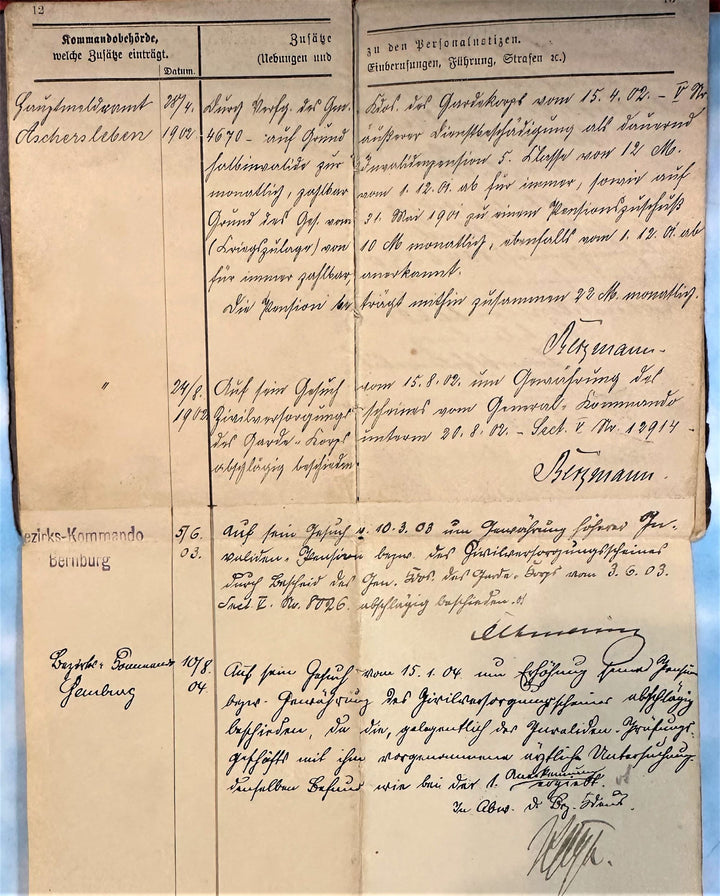 12
Kommandobehörde,
welche Zusätze einträgt.
Datum.
Zusätze
(Uebungen und
zu den Personalnotizen.
Einberufungen, Führung, Strafen ꝛc.)
Hauptmeldeamt 28/4. Durch Verfg. des Gen. Kdos. des Gardekorps vom 15.4.02. – V Nr
Aschersleben 1902. 4670 – auf Grund äußerer Dienstbeschädigung als dauernd
halbinvalide zur Invalidenpension 5. Classe von 12 M.
monatlich, zahlbar vom 1.12.01. ab für immer, sowie auf
Grund des Ges. vom 31. Mai 1901 zu einem Pensionszuschuß
(Kriegszulage) von 10 M monatlich, ebenfalls vom 1.12.01. ab
für immer zahlbar, anerkannt.
Die Pension beträgt mithin zusammen 22 M. monatlich.
" 24/8. Auf sein Gesuch vom 15.8.02. um Gewährung des
1902. Zivilversorgungsscheines vom General-Kommando
des Garde-Korps unterm 20.8.02. – Sect. V Nr. 12914 –
abschlägig beschieden.
ezirks-Kommando 5/6. Auf sein Gesuch v. 10.3.03 um Gewährung höherer In-
Bernburg 03. validen-Pension bezw. des Civilversorgungsscheines
durch Bescheid des Gen. Kdos. des Garde-Korps vom 3.6.03.
Sect. V. Nr. 8026 abschlägig beschieden.
Bezirks-Kommando 10/8. Auf sein Gesuch vom 15.1.04. um Erhöhung seiner Pension
04. bezw. Gewährung des Civilversorgungsscheines abschlägig
beschieden, da die, gelegentlich des Invaliden-Prüfungs-
geschäfts mit ihm vorgenommene ärztliche Untersuchung
denselben Befund wie bei der 1. Anerkennung ergiebt.
In Abw. d. Bez. Kdeurs.